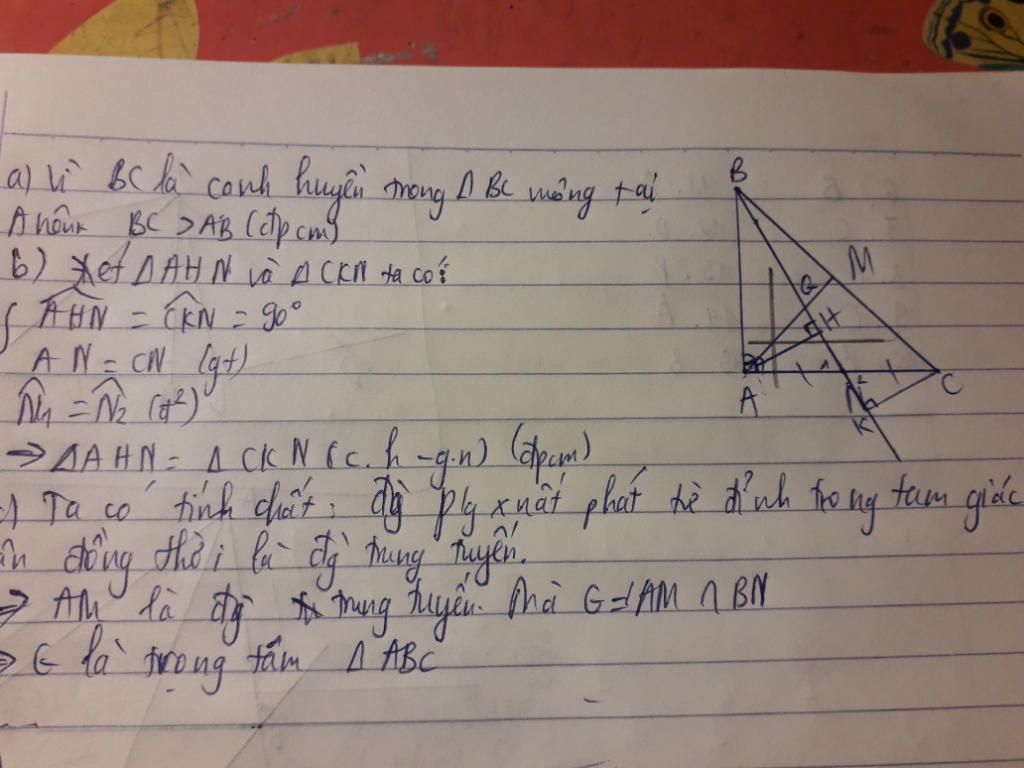 a) Vì BC là canh huyền trong Δ BC vuông tại
A nên BC > AB (đpcm)
b) Xét ΔAHN và ΔCKN ta có:
{ AHN = CKN = 90°
AN = CN (gt)
N1 = N2 (đ²)
→ ΔAHN = ΔCKN (c.h - g.n) (đpcm)
c) Ta có tính chất: đg plg xuất phát từ đỉnh trong tam giác
ân đồng thời là đg trung tuyến.
⇒ AM là đg trung tuyến. Mà G = AM ∩ BN
⇒ G là trọng tâm Δ ABC
B
M
G
H
A
N
2
C
K